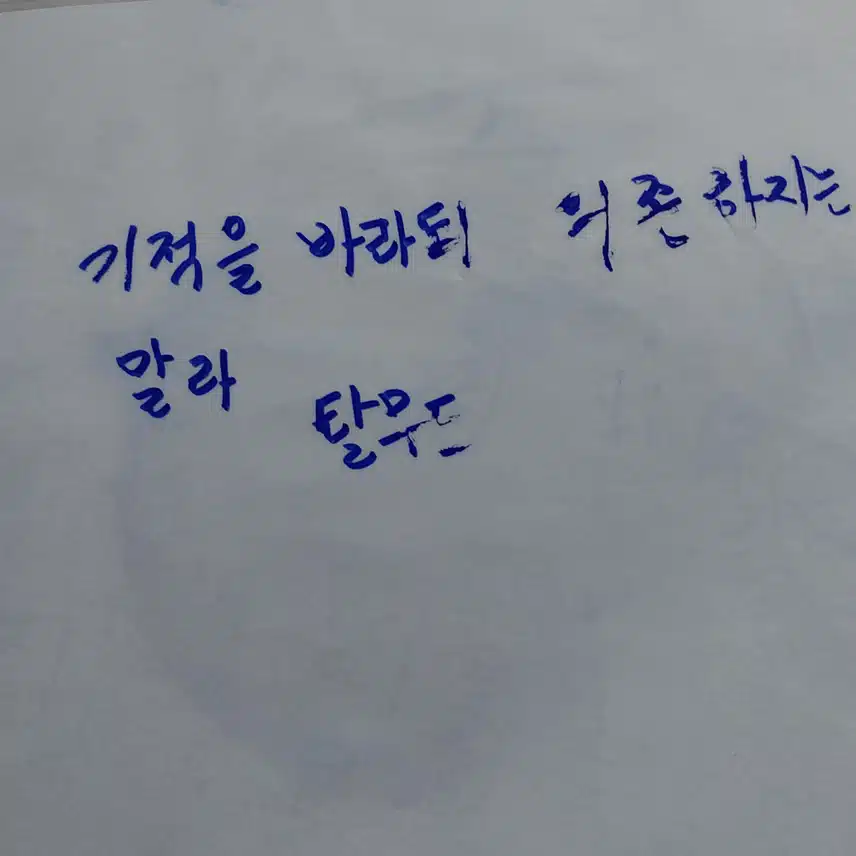 기적을 바라되 의존하지는
말라
탈무드